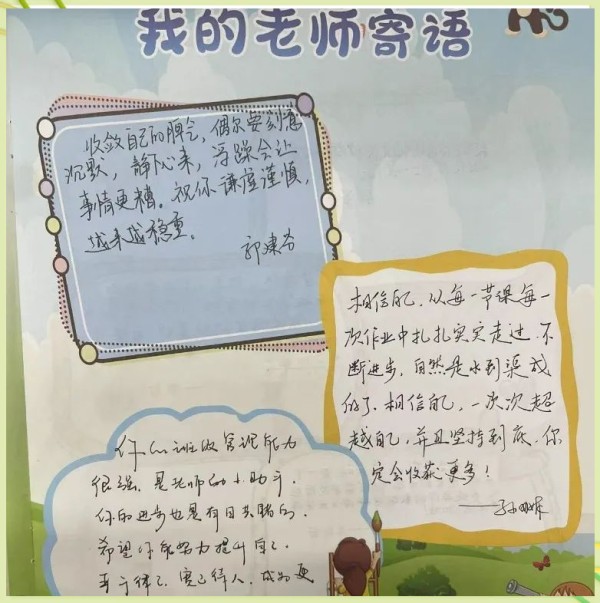 我的老师寄语
收敛自己的脾气,偶尔要刻意
沉默,静下心来,浮躁会让
事情更糟。祝你谦虚谨慎,
越来越稳重。
相信自己,从每一节课每一
次作业中扎扎实实走过,不
断进步,自然是水到渠成
的了.相信自己,一次次超
越自己,并且坚持到底,你
定会收获更多!
你的班级管理能力
很强,是老师的小助手,
你的进步也是有目共睹的,
希望你能努力提升自己,
严于律己,宽已待人,成为更